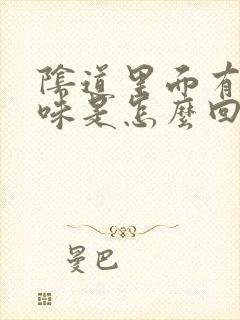 陰道里面有
味是怎麼回
曼巴